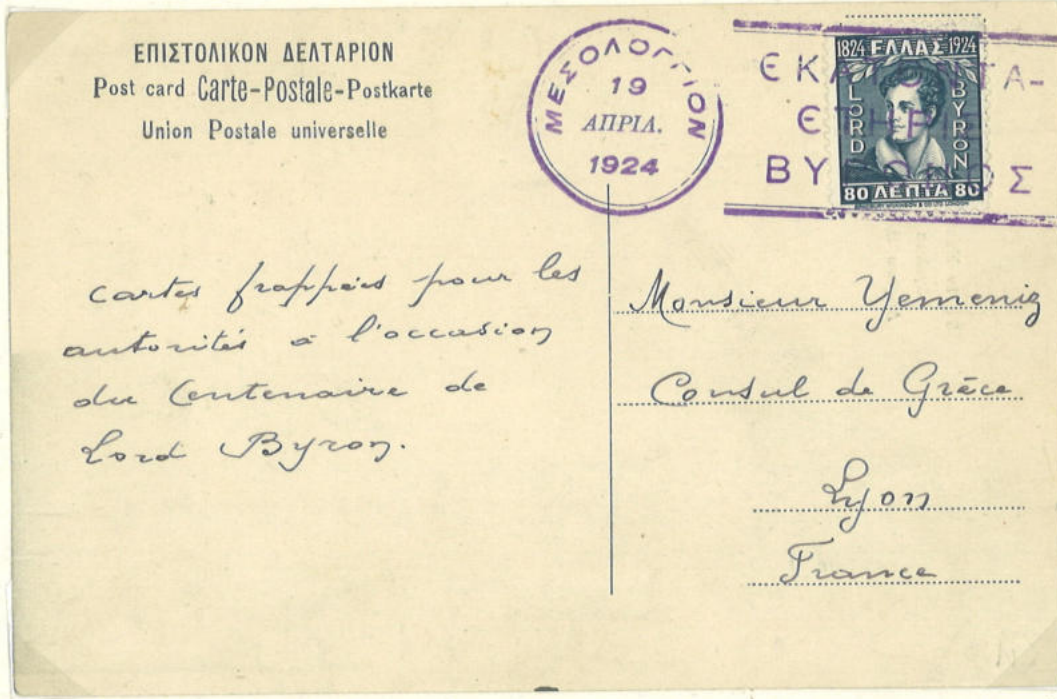 ΕΠΙΣΤΟΛΙΚΟΝ ΔΕΛΤΑΡΙΟΝ
Post card Carte-Postale-Postkarte
Union Postale universelle
ΜΕΣΟΛΟΓΓΙΟΝ
19
ΑΠΡΙΛ.
1924
ΕΚΑΤΟΝΤΑ-
ΕΤΗΡΙΣ
ΒΥΡΩΝΟΣ
1824 ΕΛΛΑΣ 1924
LORD BYRON
80 ΛΕΠΤΑ 80
cartes frappées pour les
autorités à l'occasion
du Centenaire de
Lord Byron.
Monsieur Yemeniz
Consul de Grèce
Lyon
France